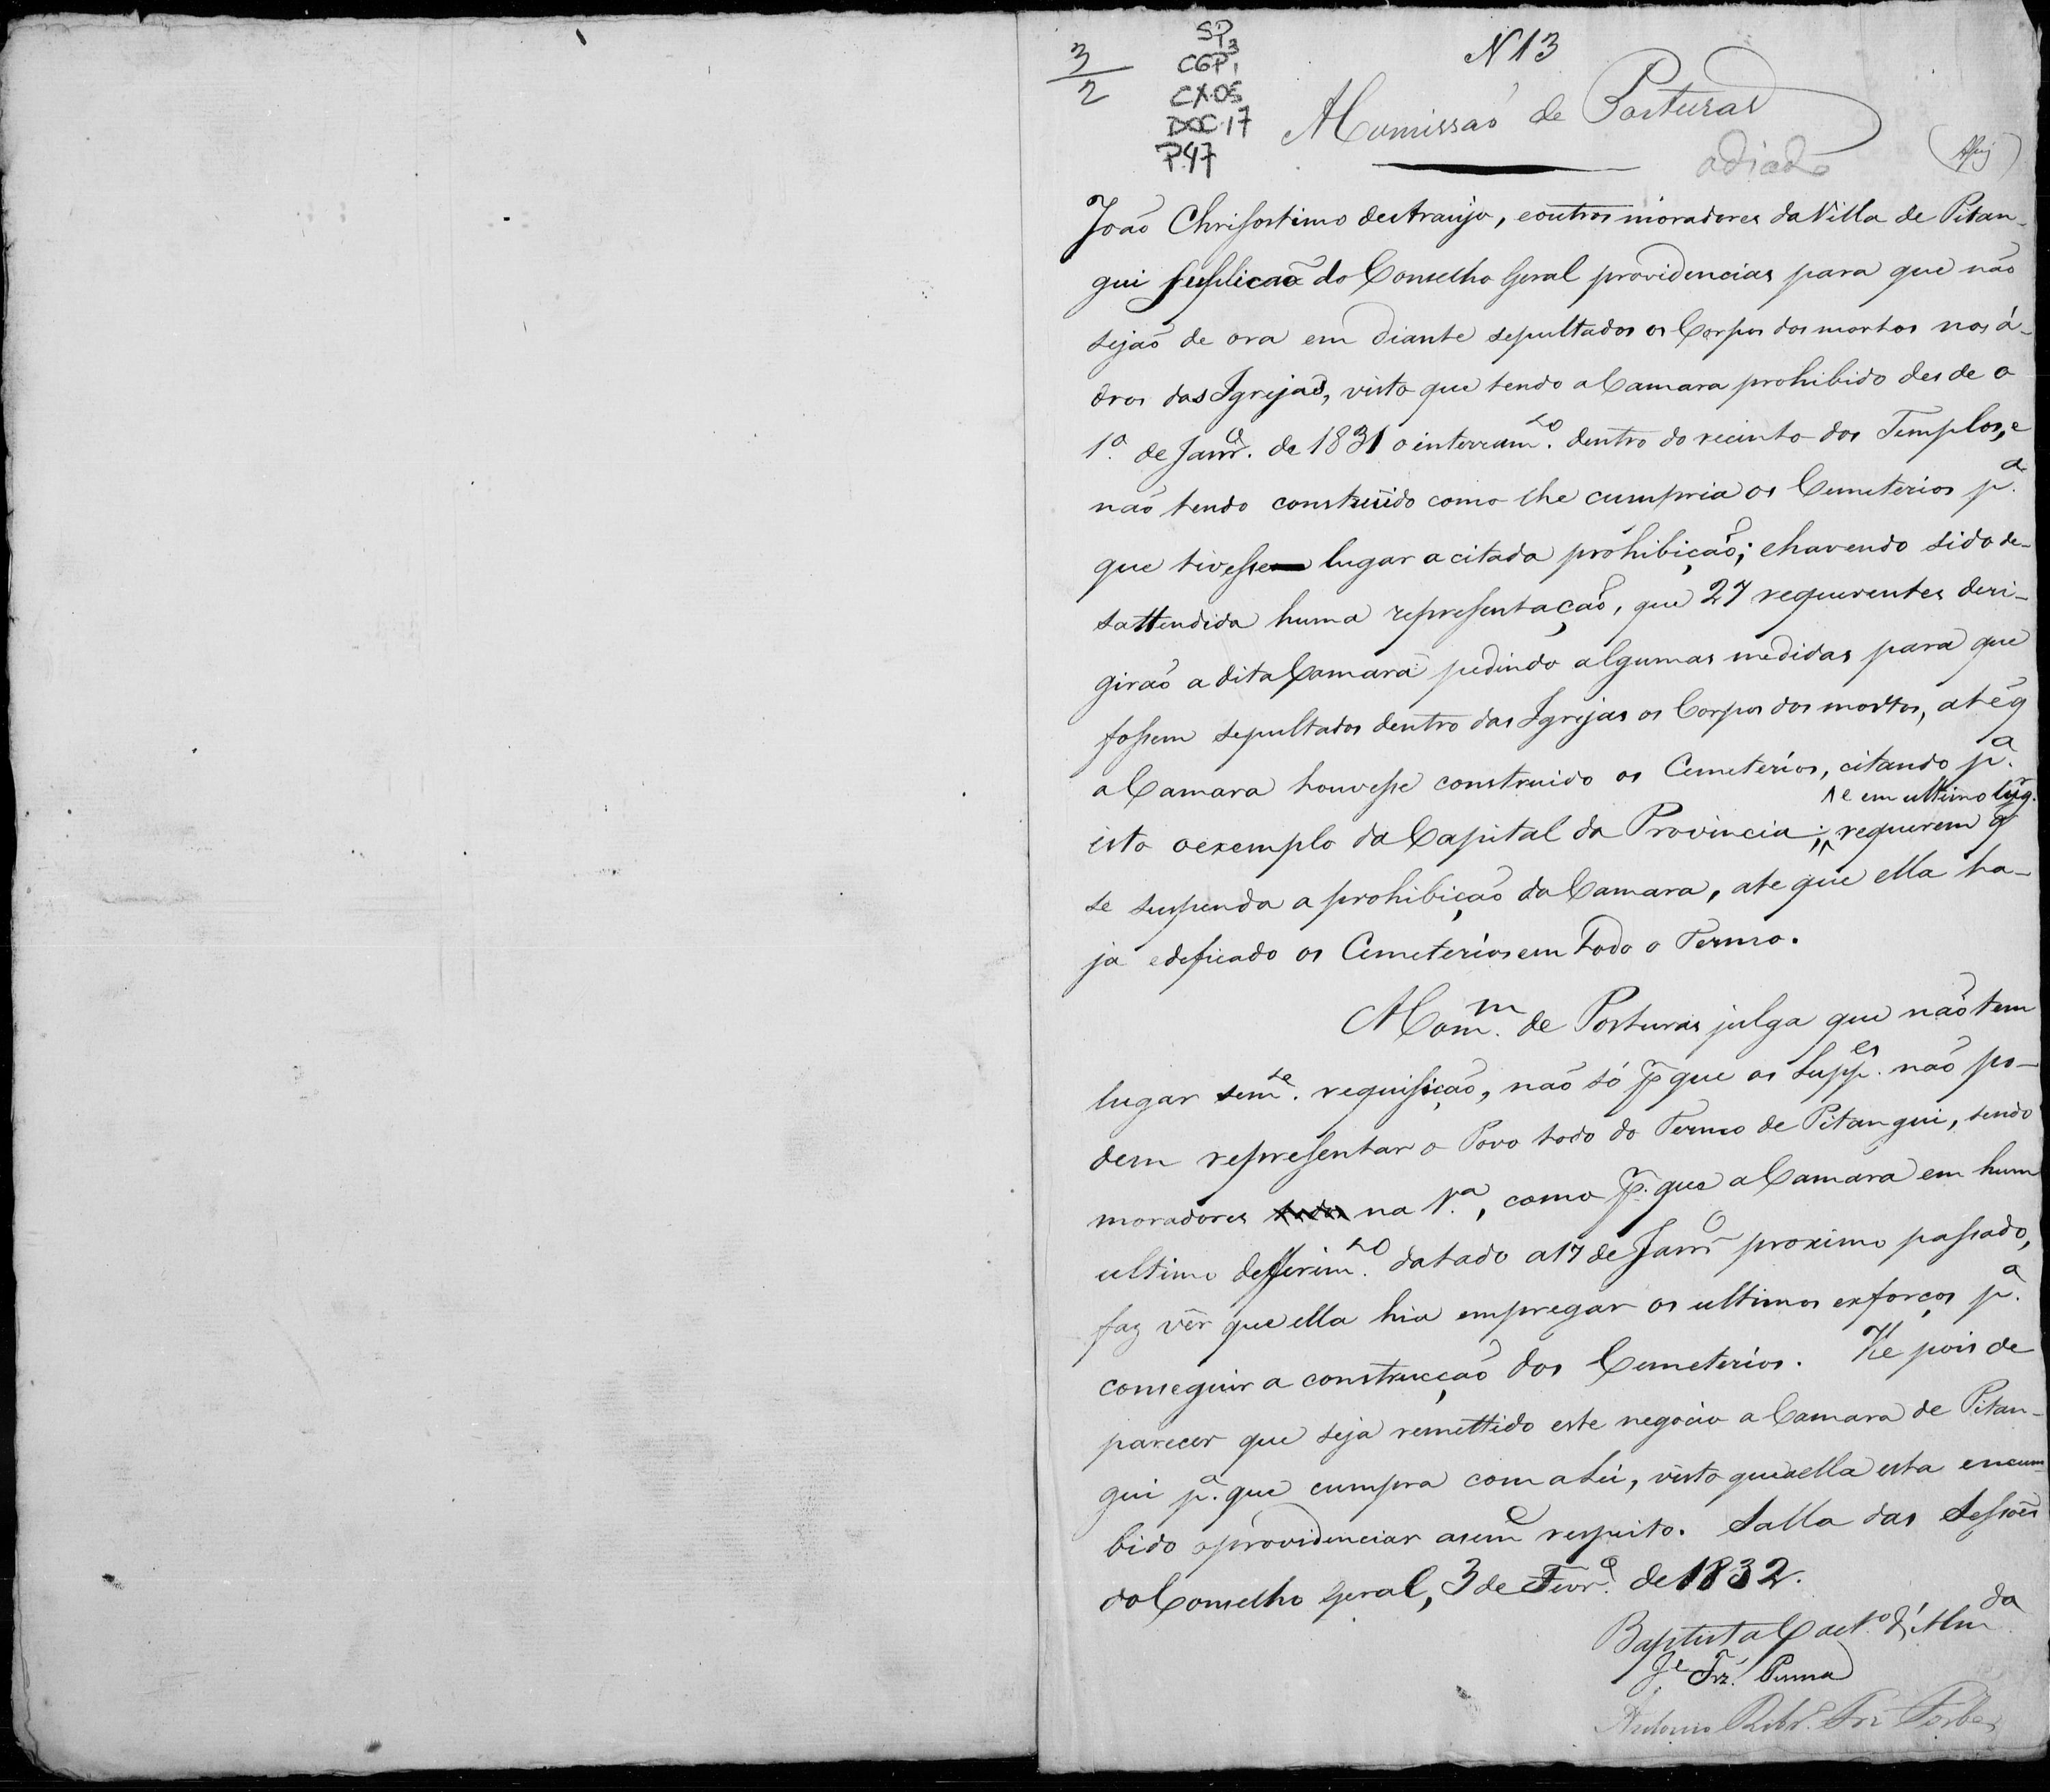 3/2
SP
CGP 1
CX.05
DOC.17
P.47
N 13
A Comissaõ de Posturas
adiado
Joaõ Chrisostimo de Araujo, e outros moradores da Villa de Pitan-
gui supplicaõ do Conselho Geral providencias para que naõ
sejaõ de ora em diante sepultados os Corpos dos mortos nos á-
dros das Igrejas, visto que tendo a Camara prohibido desde o
1º de Janrº. de 1831 o interram.to dentro do recinto dos Templos, e
naõ tendo construido como lhe cumpria os Cemeterios p.a
que tivesse lugar a citada prohibiçaõ; e havendo sido de-
sattendida huma representaçaõ, que 27 requerentes deri-
giraõ a dita Camara pedindo algumas medidas para que
fossem sepultados dentro das Igrejas os Corpos dos mortos, até q
a Camara houvesse construido os Cemeterios, citando p.a
isto o exemplo da Capital da Provincia; e em ultimo lug.r requerem q
se suspenda a prohibiçaõ da Camara, ate que ella ha-
ja edeficado os Cemeterios em todo o Termo.
A Com.m de Posturas julga que naõ tem
lugar sem.e requisiçaõ, naõ só p que os Supp.es naõ po-
dem representar o Povo todo do Termo de Pitangui, sendo
moradores todos na V.a, como p. que a Camara em hum
ultimo defferim.to datado a 17 de Janrº proximo passado,
faz vêr que ella hia empregar os ultimos exforços p.a
conseguir a construcçaõ dos Cemeterios. He pois de
parecer que seja remettido este negocio a Camara de Pitan-
gui p.a que cumpra com a Lei, visto que a ella esta encum-
bido o providenciar a sem.e respeito. Salla das Sessoẽs
do Conselho Geral, 3 de Fevrº. de 1832.
Baptista Caet.o d'Alm.da
J.e Frz. Penna
Antonio Ribr.